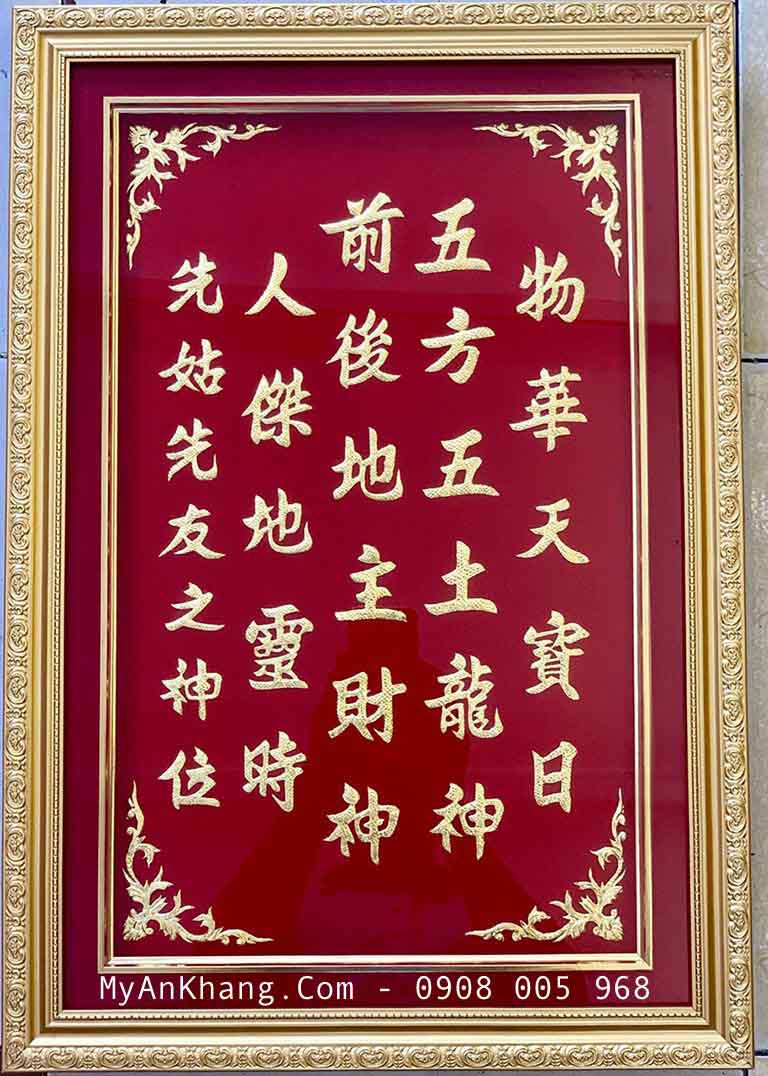 物華天寳日
五方五土龍神
前後地主財神
人傑地靈時
先姑先友之神位
MyAnKhang.Com - 0908 005 968